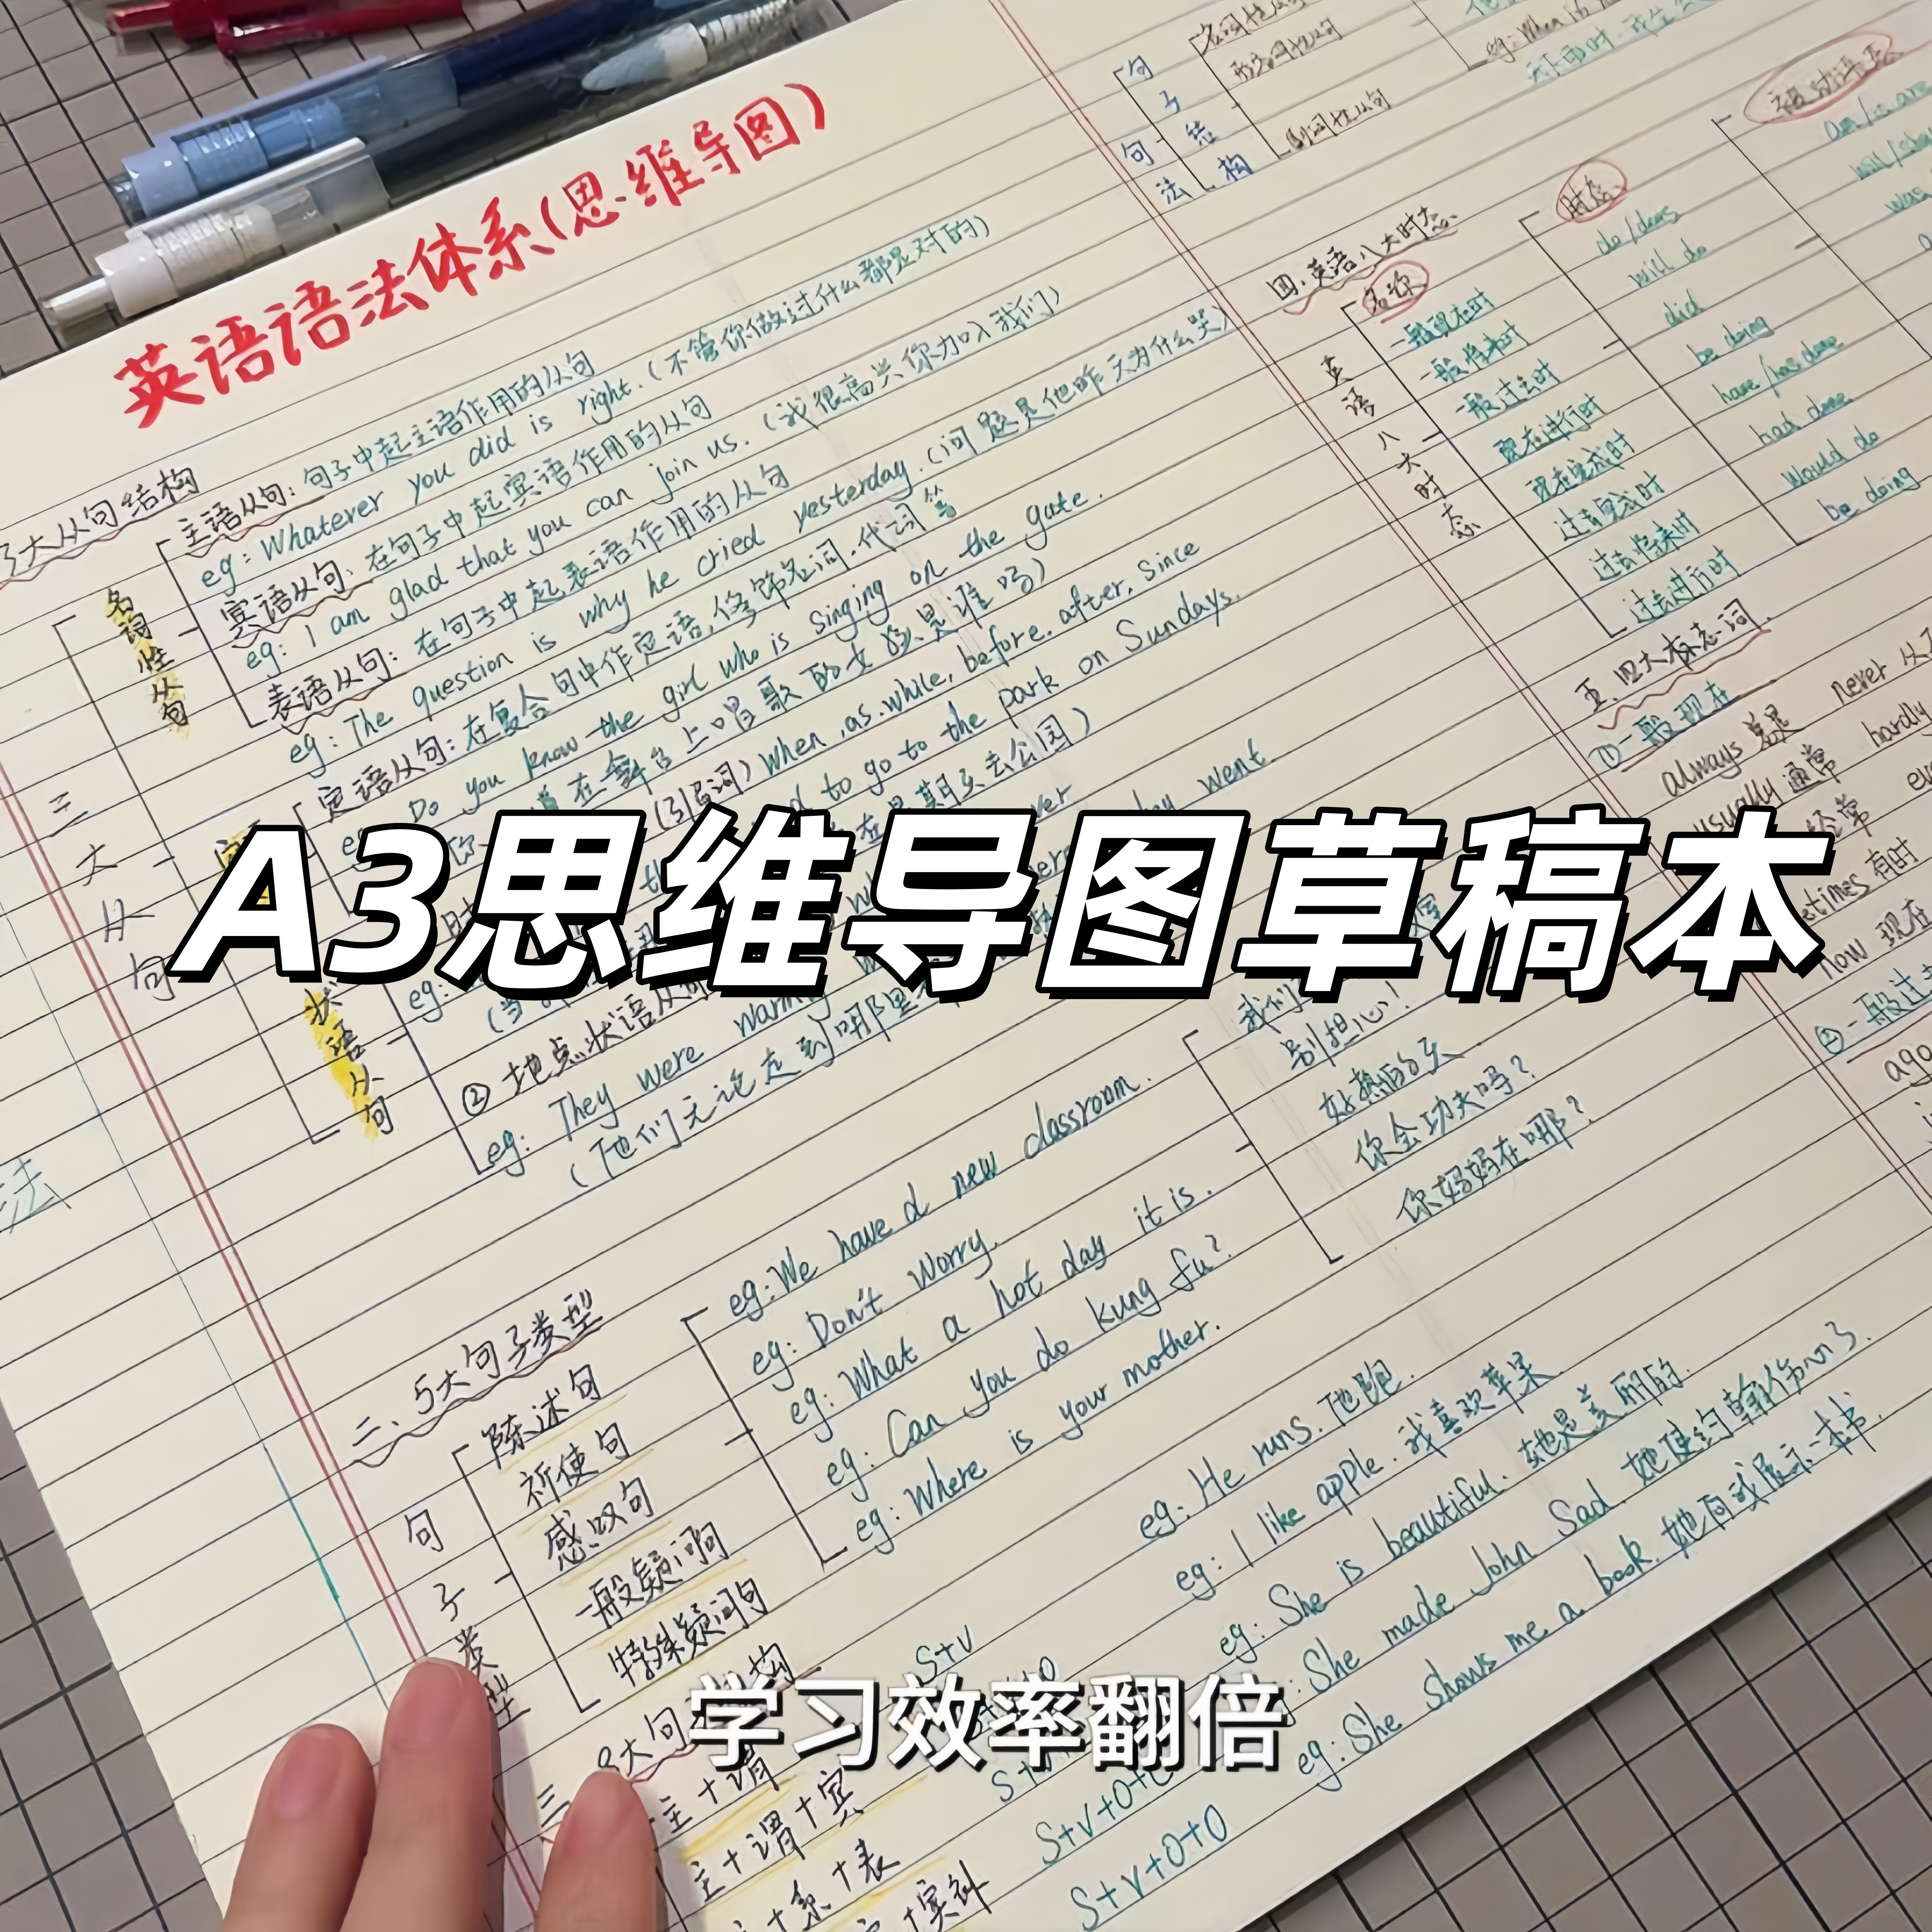 英语语法体系(思维导图)
3大从句结构
三大从句
名词性从句
主语从句：句子中起主语作用的从句
eg：Whatever you did is right.（不管你做过什么都是对的）
宾语从句：在句子中起宾语作用的从句
eg：I am glad that you can join us.（我很高兴你加入我们）
表语从句：在句子中起表语作用的从句
eg：The question is why he cried yesterday.（问题是他昨天为什么哭）
定语从句：在复合句中作定语,修饰名词.代词等
eg：Do you know the girl who is singing on the gate.
上唱歌的女孩是谁吗）
When,as.while,before.after.since
to go to the park on Sundays.
期天去公园）
A3思维导图草稿本
状语从句
②地点状语从句
eg：They were
（他们无论走到哪里
二、5大句子类型
句子类型
陈述句
祈使句
感叹句
一般疑问句
特殊疑问句
eg：We have a new classroom.
eg：Don't Worry.
eg：What a hot day it is.
eg：Can you do kung fu?
eg：Where is your mother.
我们
别担心!
好热的天.
你会功夫吗?
你妈妈在哪?
学习效率翻倍
主+谓
主+谓+宾
+系+表
S+V
S+V+O+O
eg：He runs.他跑.
eg：I like apple.我喜欢苹果.
eg：She is beautiful.她是美丽的.
eg：She made John Sad.她使约翰伤心了.
eg：She shows me a book.她向我展示一本书.
句法
句子结构
名词性从句
形容词性从句
副词性从句
四.英语八大时态
英语八大时态
名称
一般现在时
一般将来时
一般过去时
现在进行时
现在完成时
过去完成时
过去将来时
过去进行时
时态
do/does
will do
did
be doing
have/has done
had done
would do
be doing
五、四大标志词.
①一般现在
always 总是
never
usually 通常
hardly
有时
Now 现在
②一般过去
ago